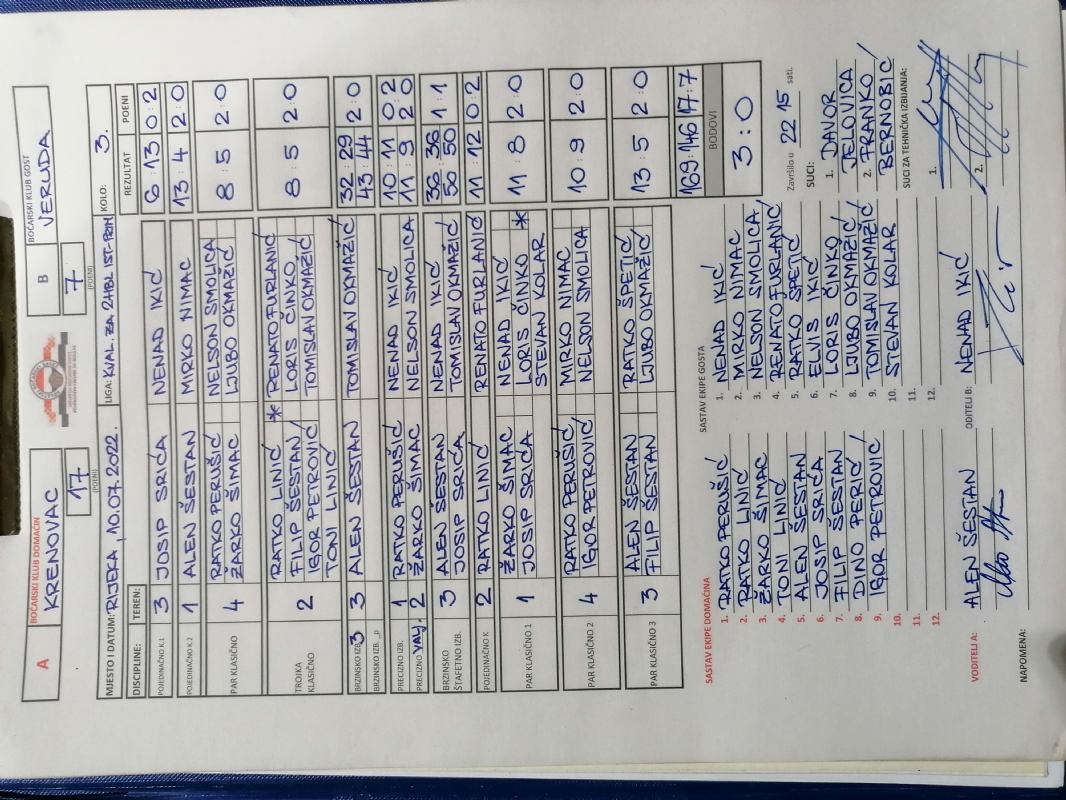 A BOĆARSKI KLUB DOMAĆIN KRENOVAC 17 (POENI) B BOĆARSKI KLUB GOST VERUDA 7 (POENI)
MJESTO I DATUM: RIJEKA, 10.07.2022. LIGA: KVAL. ZA 2HBL IST-PRIM KOLO: 3.
DISCIPLINE: TEREN: REZULTAT POENI
POJEDINAČNO K.1 3 JOSIP SRIĆA NENAD IKIĆ 6:13 0:2
POJEDINAČNO K.2 1 ALEN ŠESTAN MIRKO NIMAC 13:4 2:0
PAR KLASIČNO 4 RATKO PERUŠIĆ NELSON SMOLICA 8:5 2:0
ŽARKO ŠIMAC LJUBO OKMAŽIĆ
TROJKA KLASIČNO 2 RATKO LINIĆ * RENATO FURLANIĆ 8:5 2:0
FILIP ŠESTAN LORIS ČINKO
IGOR PETROVIĆ TOMISLAV OKMAŽIĆ
TONI LINIĆ
BRZINSKO IZB. 3 3 ALEN ŠESTAN TOMISLAV OKMAŽIĆ 32:29 2:0
BRZINSKO IZB. _P 43:44
PRECIZNO IZB. 1 RATKO PERUŠIĆ NENAD IKIĆ 10:11 0:2
PRECIZNO VALJ. 2 ŽARKO ŠIMAC NELSON SMOLICA 11:9 2:0
BRZINSKO ŠTAFETNO IZB. 3 ALEN ŠESTAN NENAD IKIĆ 36:36 1:1
JOSIP SRIĆA TOMISLAV OKMAŽIĆ 50 50
POJEDINAČNO K 2 RATKO LINIĆ RENATO FURLANIĆ 11:12 0:2
PAR KLASIČNO 1 1 ŽARKO ŠIMAC NENAD IKIĆ 11:8 2:0
JOSIP SRIĆA LORIS ČINKO *
STEVAN KOLAR
PAR KLASIČNO 2 4 RATKO PERUŠIĆ MIRKO NIMAC 10:9 2:0
IGOR PETROVIĆ NELSON SMOLICA
PAR KLASIČNO 3 3 ALEN ŠESTAN RATKO ŠPETIĆ 13:5 2:0
FILIP ŠESTAN LJUBO OKMAŽIĆ
169:146 17:7
BODOVI
3:0
SASTAV EKIPE DOMAĆINA
1. RATKO PERUŠIĆ
2. RATKO LINIĆ
3. ŽARKO ŠIMAC
4. TONI LINIĆ
5. ALEN ŠESTAN
6. JOSIP SRIĆA
7. FILIP ŠESTAN
8. DINO PERIĆ
9. IGOR PETROVIĆ
10.
11.
12.
SASTAV EKIPE GOSTA
1. NENAD IKIĆ
2. MIRKO NIMAC
3. NELSON SMOLICA
4. RENATO FURLANIĆ
5. RATKO SPETIĆ
6. ELVIS IKIĆ
7. LORIS ČINKO
8. LJUBO OKMAŽIĆ
9. TOMISLAV OKMAŽIĆ
10. STEVAN KOLAR
11.
12.
Završilo u 22 15 sati.
SUCI:
1. DAVOR
JELOVICA
2. FRANKO
BERNOBIĆ
SUCI ZA TEHNIČKA IZBIJANJA:
1.
2.
VODITELJ A: ALEN ŠESTAN
ODITELJ B: NENAD IKIĆ
NAPOMENA: